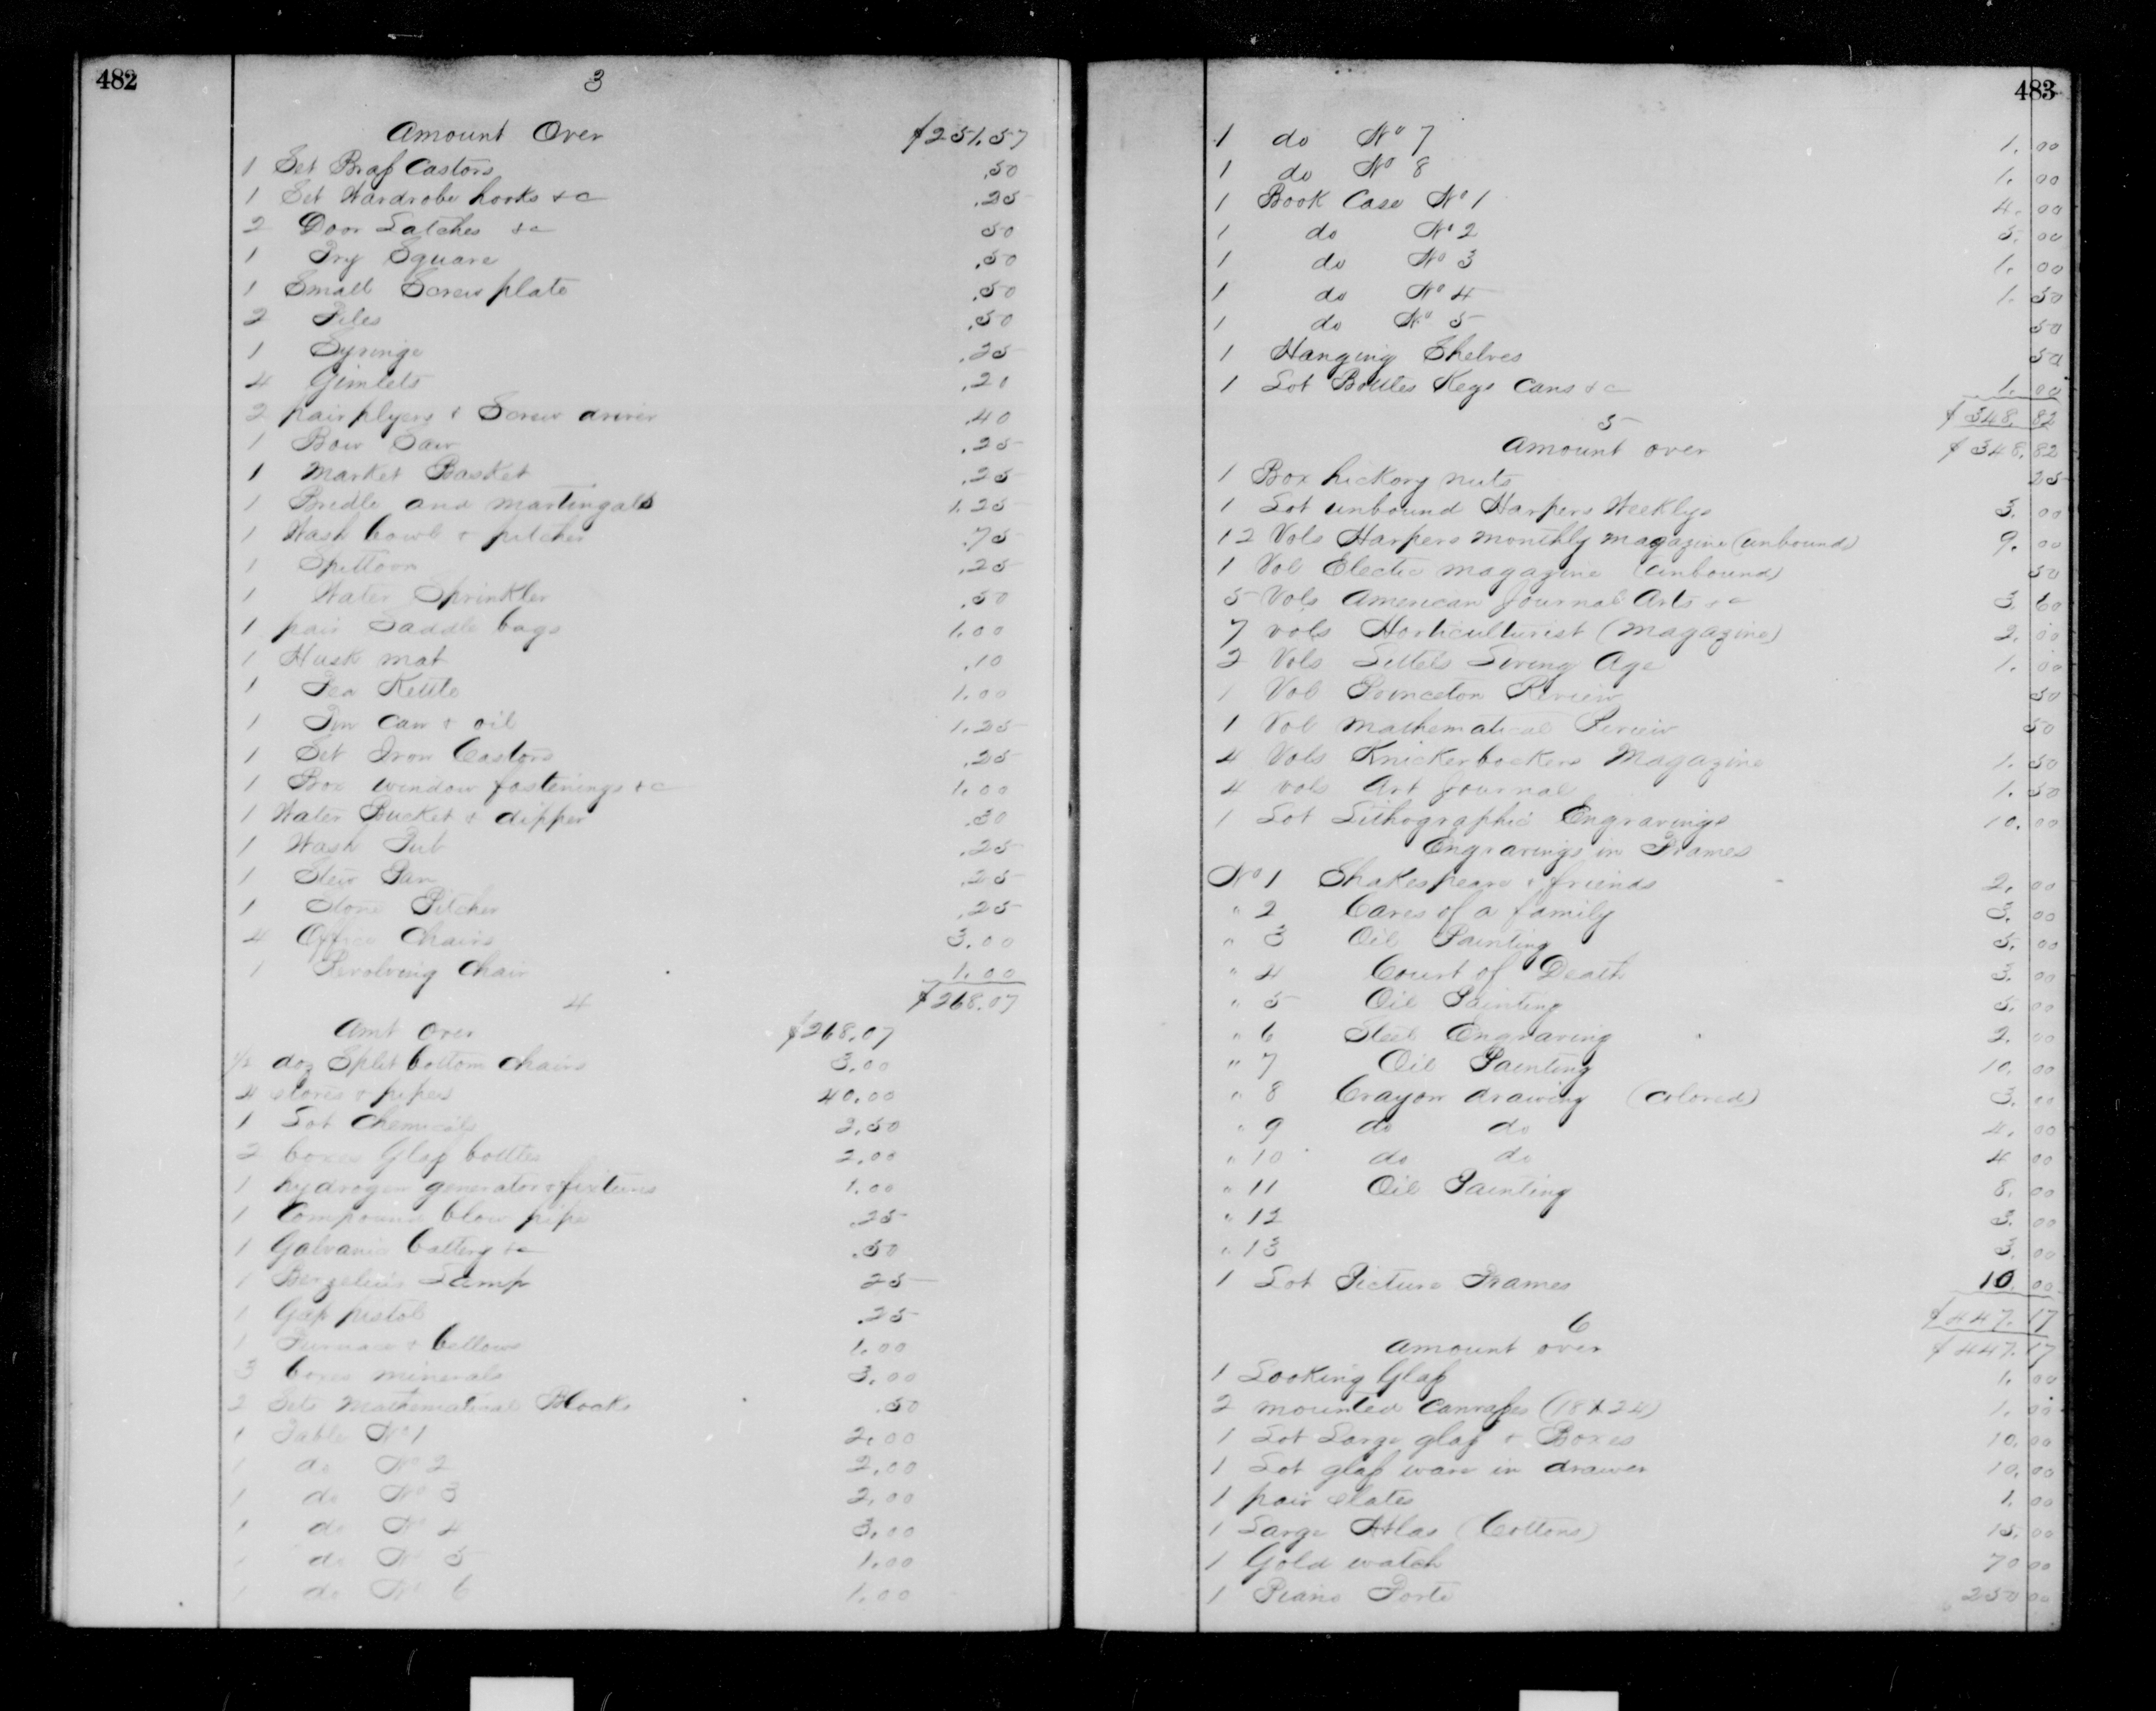 482
3
Amount Over $251.57
1 Set Brass Castors .50
1 Set Wardrobe hooks &c .25
2 Door Latches &c 50
1 Try Square .50
1 Small Screw plate .50
2 Files .50
1 Syringe .25
4 Gimlets .20
2 pair plyers & Screw driver .40
1 Bow Saw .25
1 Market Basket .25
1 Bridle and Martingale 1.25
1 Wash bowl & pitcher .75
1 Spittoon .25
1 Water Sprinkler .50
1 pair Saddle bags 1.00
1 Husk mat .10
1 Tea Kettle 1.00
1 Tin Can & oil 1.25
1 Set Iron Castors .25
1 Box window fastenings &c 1.00
1 Water Bucket & dipper .30
1 Wash Tub .25
1 Stew Pan .25
1 Stone Pitcher .25
4 Office Chairs 3.00
1 Revolving Chair 1.00
$268.07
4
Amt over $268.07
1/2 doz Split bottom chairs 3.00
4 stoves & pipes 40.00
1 Lot Chemicals 2.50
2 boxes Glass bottles 2.00
1 hydrogen generator & fixtures 1.00
1 Compound blow pipe .25
1 Galvanic battery &c .50
1 Berzelius Lamp 25
1 Gas pistol .25
1 Furnace & bellows 1.00
3 boxes minerals 3.00
2 Sets Mathematical Blocks .50
1 Table No 1 2.00
1 do No 2 2.00
1 do No 3 2.00
1 do No 4 3.00
1 do No 5 1.00
1 do No 6 1.00
483
1 do No 7 1.00
1 do No 8 1.00
1 Book Case No 1 4.00
1 do No 2 5.00
1 do No 3 1.00
1 do No 4 1.50
1 do No 5 50
1 Hanging Shelves 50
1 Lot Bottles Kegs Cans &c 1.00
$348.82
5
Amount over $348.82
1 Box hickory nuts 25
1 Lot unbound Harpers Weeklys 3.00
12 Vols Harpers monthly magazine (unbound) 9.00
1 Vol Electic magazine (unbound) 50
5 Vols American Journal Arts &c 3.60
7 vols Horticulturist (magazine) 2.00
2 Vols Littels Living Age 1.00
1 Vol Princeton Review 50
1 Vol Mathematical Review 50
4 Vols Knickerbockers Magazine 1.50
4 vols Art Journal 1.50
1 Lot Lithographic Engravings 10.00
Engravings in Frames
No 1 Shakespeare & friends 2.00
" 2 Cares of a family 3.00
" 3 Oil Painting 5.00
" 4 Court of Death 3.00
" 5 Oil Painting 5.00
" 6 Steel Engraving 2.00
" 7 Oil Painting 10.00
" 8 Crayon drawing (colored) 3.00
" 9 do do 4.00
" 10 do do 4 00
" 11 Oil Painting 8.00
" 12 3.00
" 13 3.00
1 Lot Picture Frames 10.00
$447.17
6
Amount over $447.17
1 Looking Glass 1.00
2 mounted Canvasses (18 X 24) 1.00
1 Lot Large glass & Boxes 10.00
1 Lot glass ware in drawer 10.00
1 pair slates 1.00
1 Large Atlas (Coltons) 15.00
1 Gold watch 70 00
1 Piano Forte 250 00